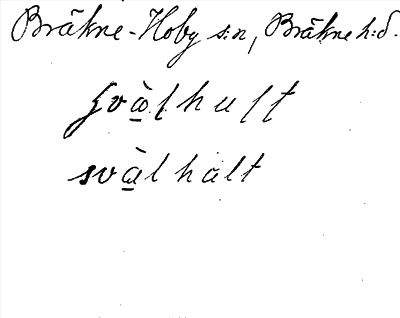 Bräkne-Hoby s:n, Bräkne h:d.
svàlhult
svàlhalt